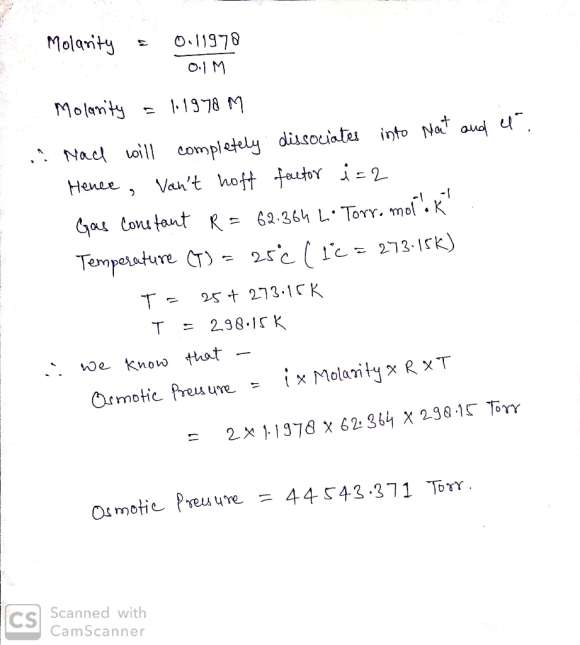 Molarity = 0.11978
0.1 M
Molarity = 1.1978 M
∴ Nacl will completely dissociates into Na⁺ and cl⁻.
Hence, Van't hoft factor i = 2
Gas Constant R = 62.364 L. Torr. mol⁻¹. K⁻¹
Temperature (T) = 25°c ( 1°c = 273.15K)
T = 25 + 273.15 K
T = 298.15 K
∴ we know that –
Osmotic Pressure = i x Molarity x R x T
= 2 x 1.1978 x 62.364 x 298.15 Torr
Osmotic Pressure = 44543.371 Torr.
CS Scanned with
CamScanner